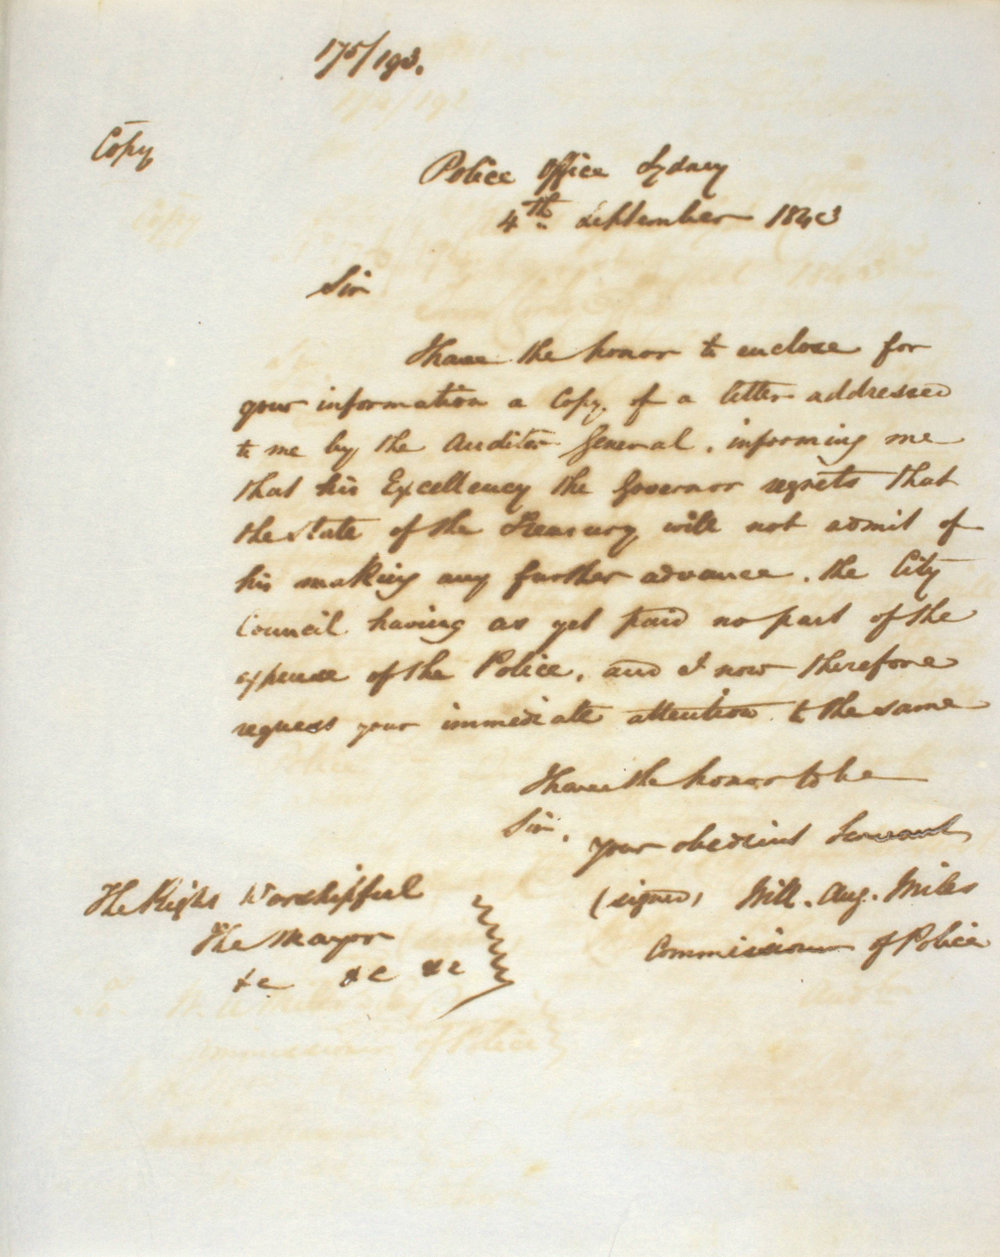 175/193.
Copy
Police Office Sydney
4th September 1843
Sir
I have the honor to enclose for
your information a Copy of a letter addressed
to me by the Auditor General, informing me
that his Excellency the Governor regrets that
the State of the Treasury will not admit of
his making any further advance, the City
Council having as yet paid no part of the
expense of the Police, and I now therefore
request your immediate attention to the same
I have the honor to be
Sir,
Your obedient Servant
(signed) Will. Aug. Miles
Commissioner of Police
The Right Worshipful
The Mayor
&c &c &c